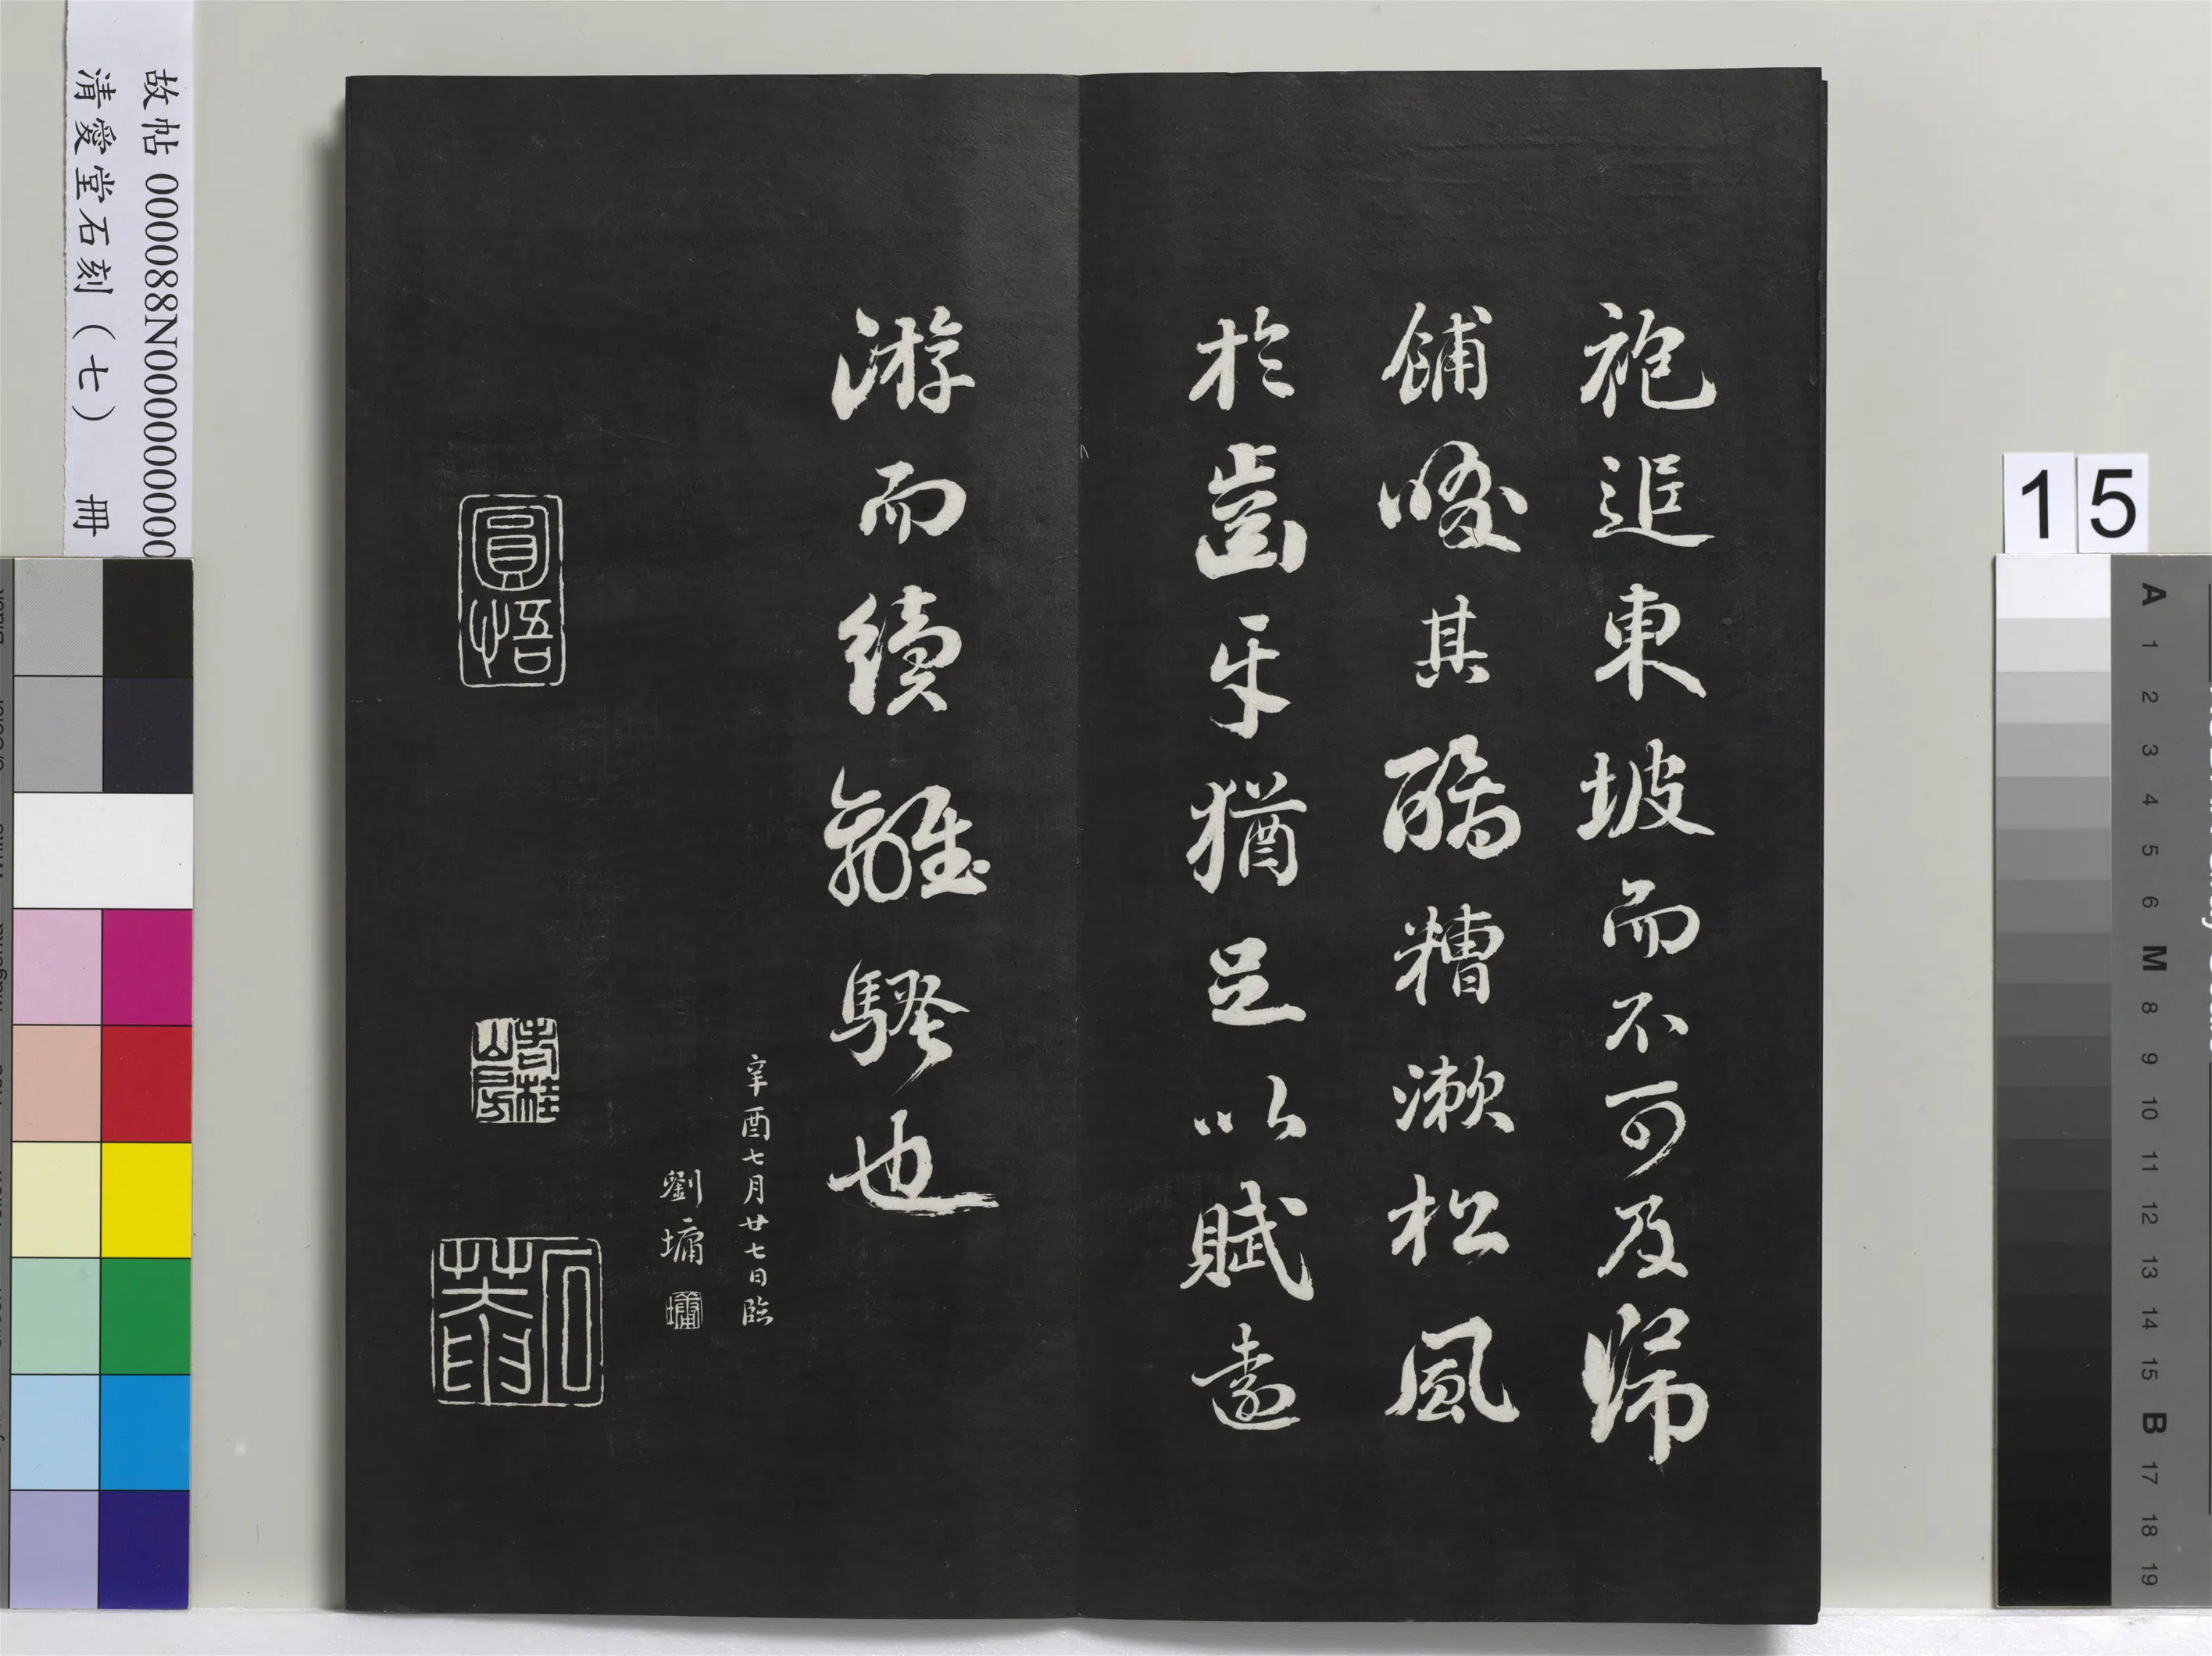 袍追東坡而不可及歸
餔啜其醨糟漱松風
於齒牙猶足以賦遠
游而續離騷也
辛酉七月廿七日臨
劉墉
墉
圓悟
山房
石菴
故帖 000088N000000000
清愛堂石刻（七） 冊
15
A 1 2 3 4 5 6 M 8 9 10 11 12 13 14 15 B 17 18 19